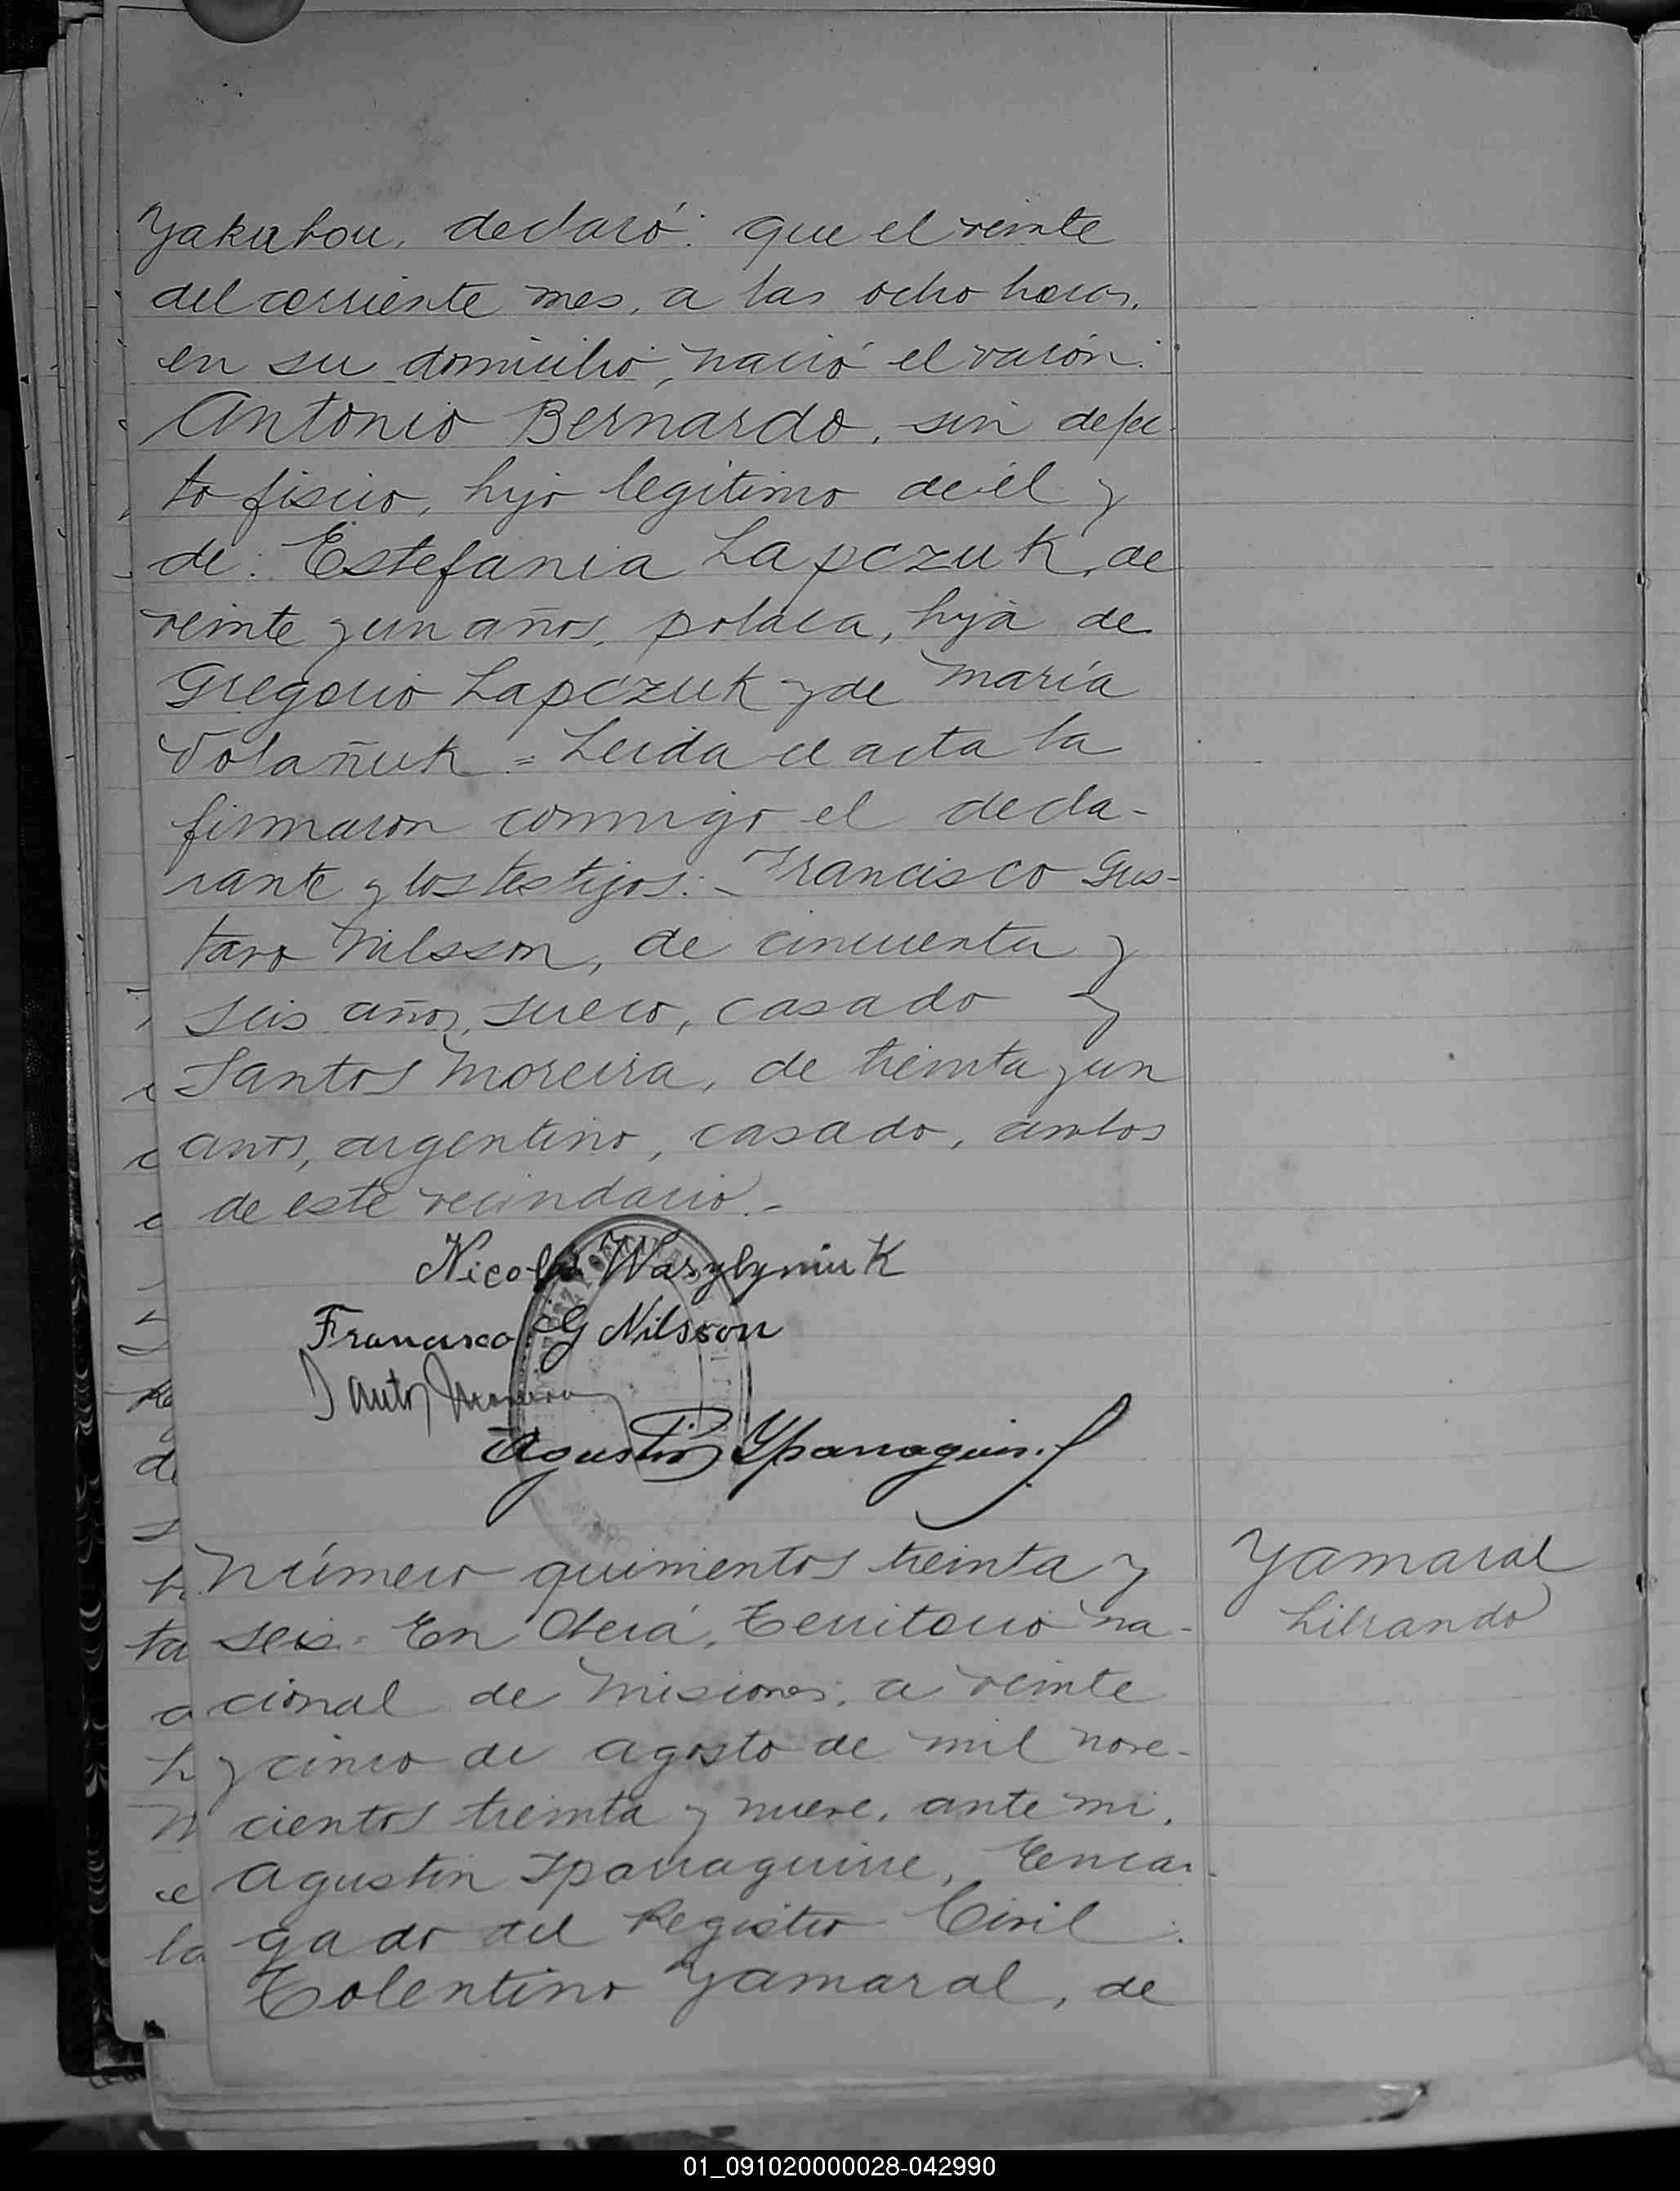 Yakubou, declaró: que el veinte
del corriente mes, a las ocho horas,
en su domicilio, nació el varón:
Antonio Bernardo, sin defec-
to físico, hijo legítimo de él y
de: Estefania Lapczuk, de
veinte y un años, polaca, hija de
Gregorio Lapczuk y de María
Volañuk = Leida el acta la
firmaron conmigo el decla-
rante y los testigos: Francisco Gus-
tavo Nilsson, de cincuenta y
seis años, sueco, casado y
Santos Moreira, de treinta y un
anos, argentino, casado, ambos
de este vecindario.-
Nicolas Wasylyniuk
Francisco G Nilsson
Santos Moreira
Agustin Yparraguirre
Número quinientos treinta y
seis = En Oberá, Territorio na-
cional de Misiones, a veinte
y cinco de agosto de mil nove-
cientos treinta y nueve, ante mi,
Agustin Iparraguirre, Encar-
gado del Registro Civil:
Tolentino Yamaral, de
Yamaral
Librando
01_091020000028-042990